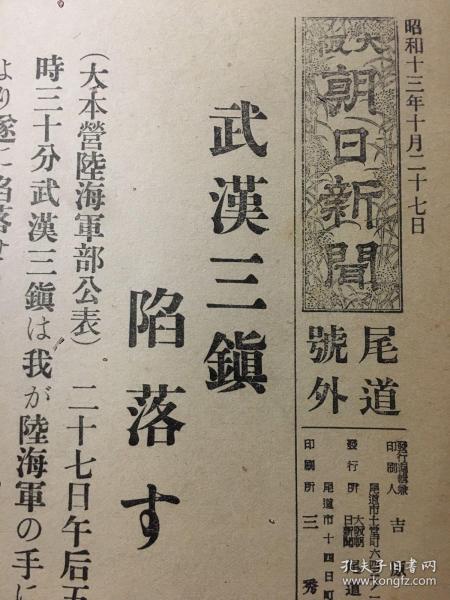 昭和十三年十月二十七日
大阪
朝日新聞
尾道
號外
發行編輯兼
印刷人 吉
尾道市十堂町六四
發行所 大阪朝日新聞尾道
尾道市十四日町
印刷所 三秀
武漢三鎭
陷落す
(大本營陸海軍部公表) 二十七日午后五
時三十分武漢三鎭は我が陸海軍の手に
より遂に陷落せ
孔夫子旧书网
kongfz.com